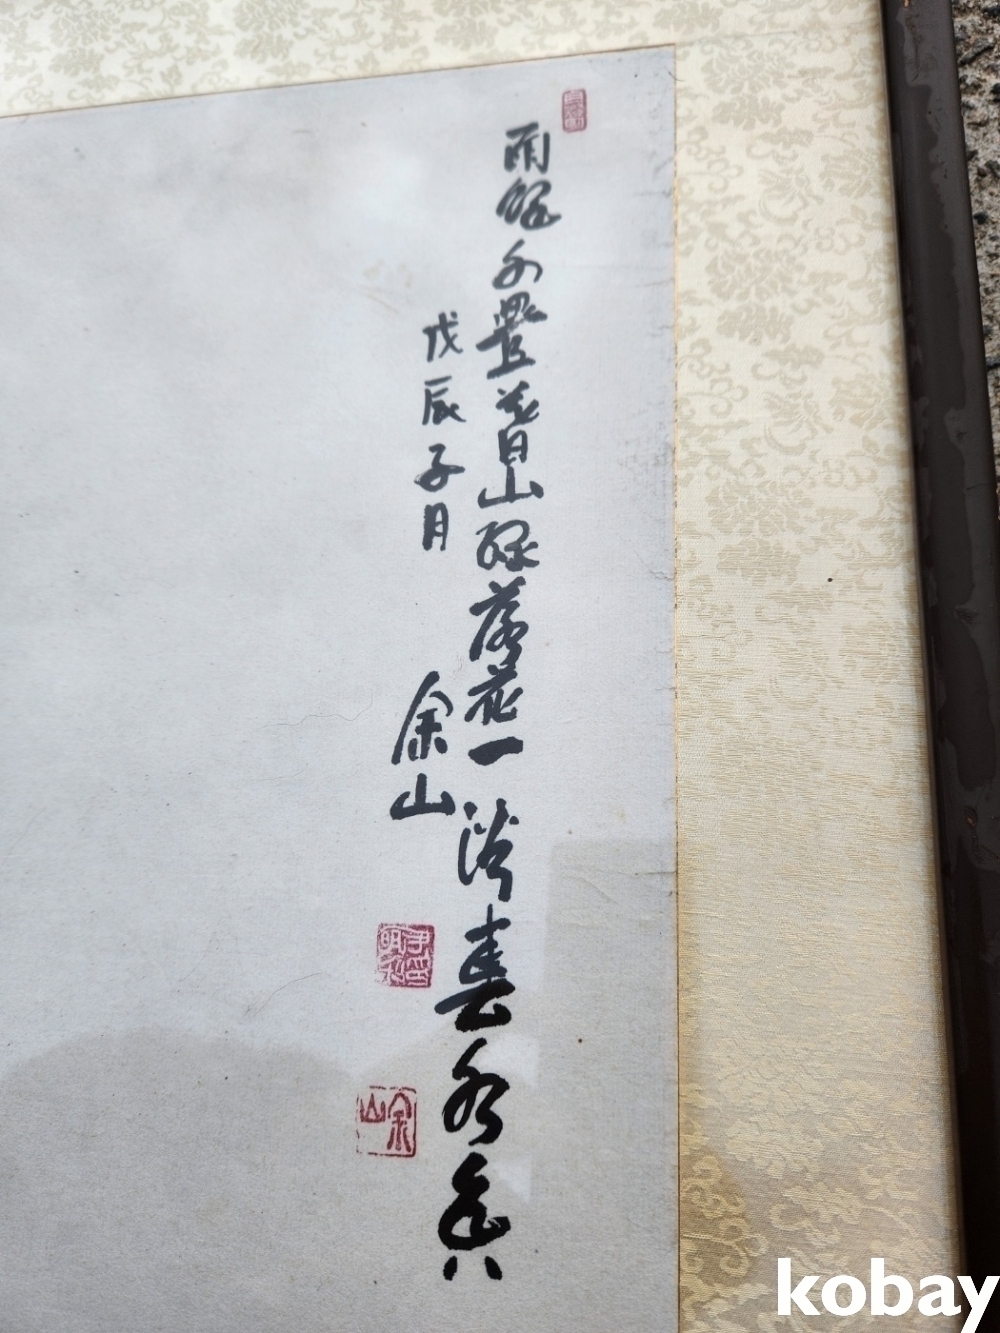 雨餘千疊暮山綠落花一溪春水香
戊辰子月
余山
余山
kobay